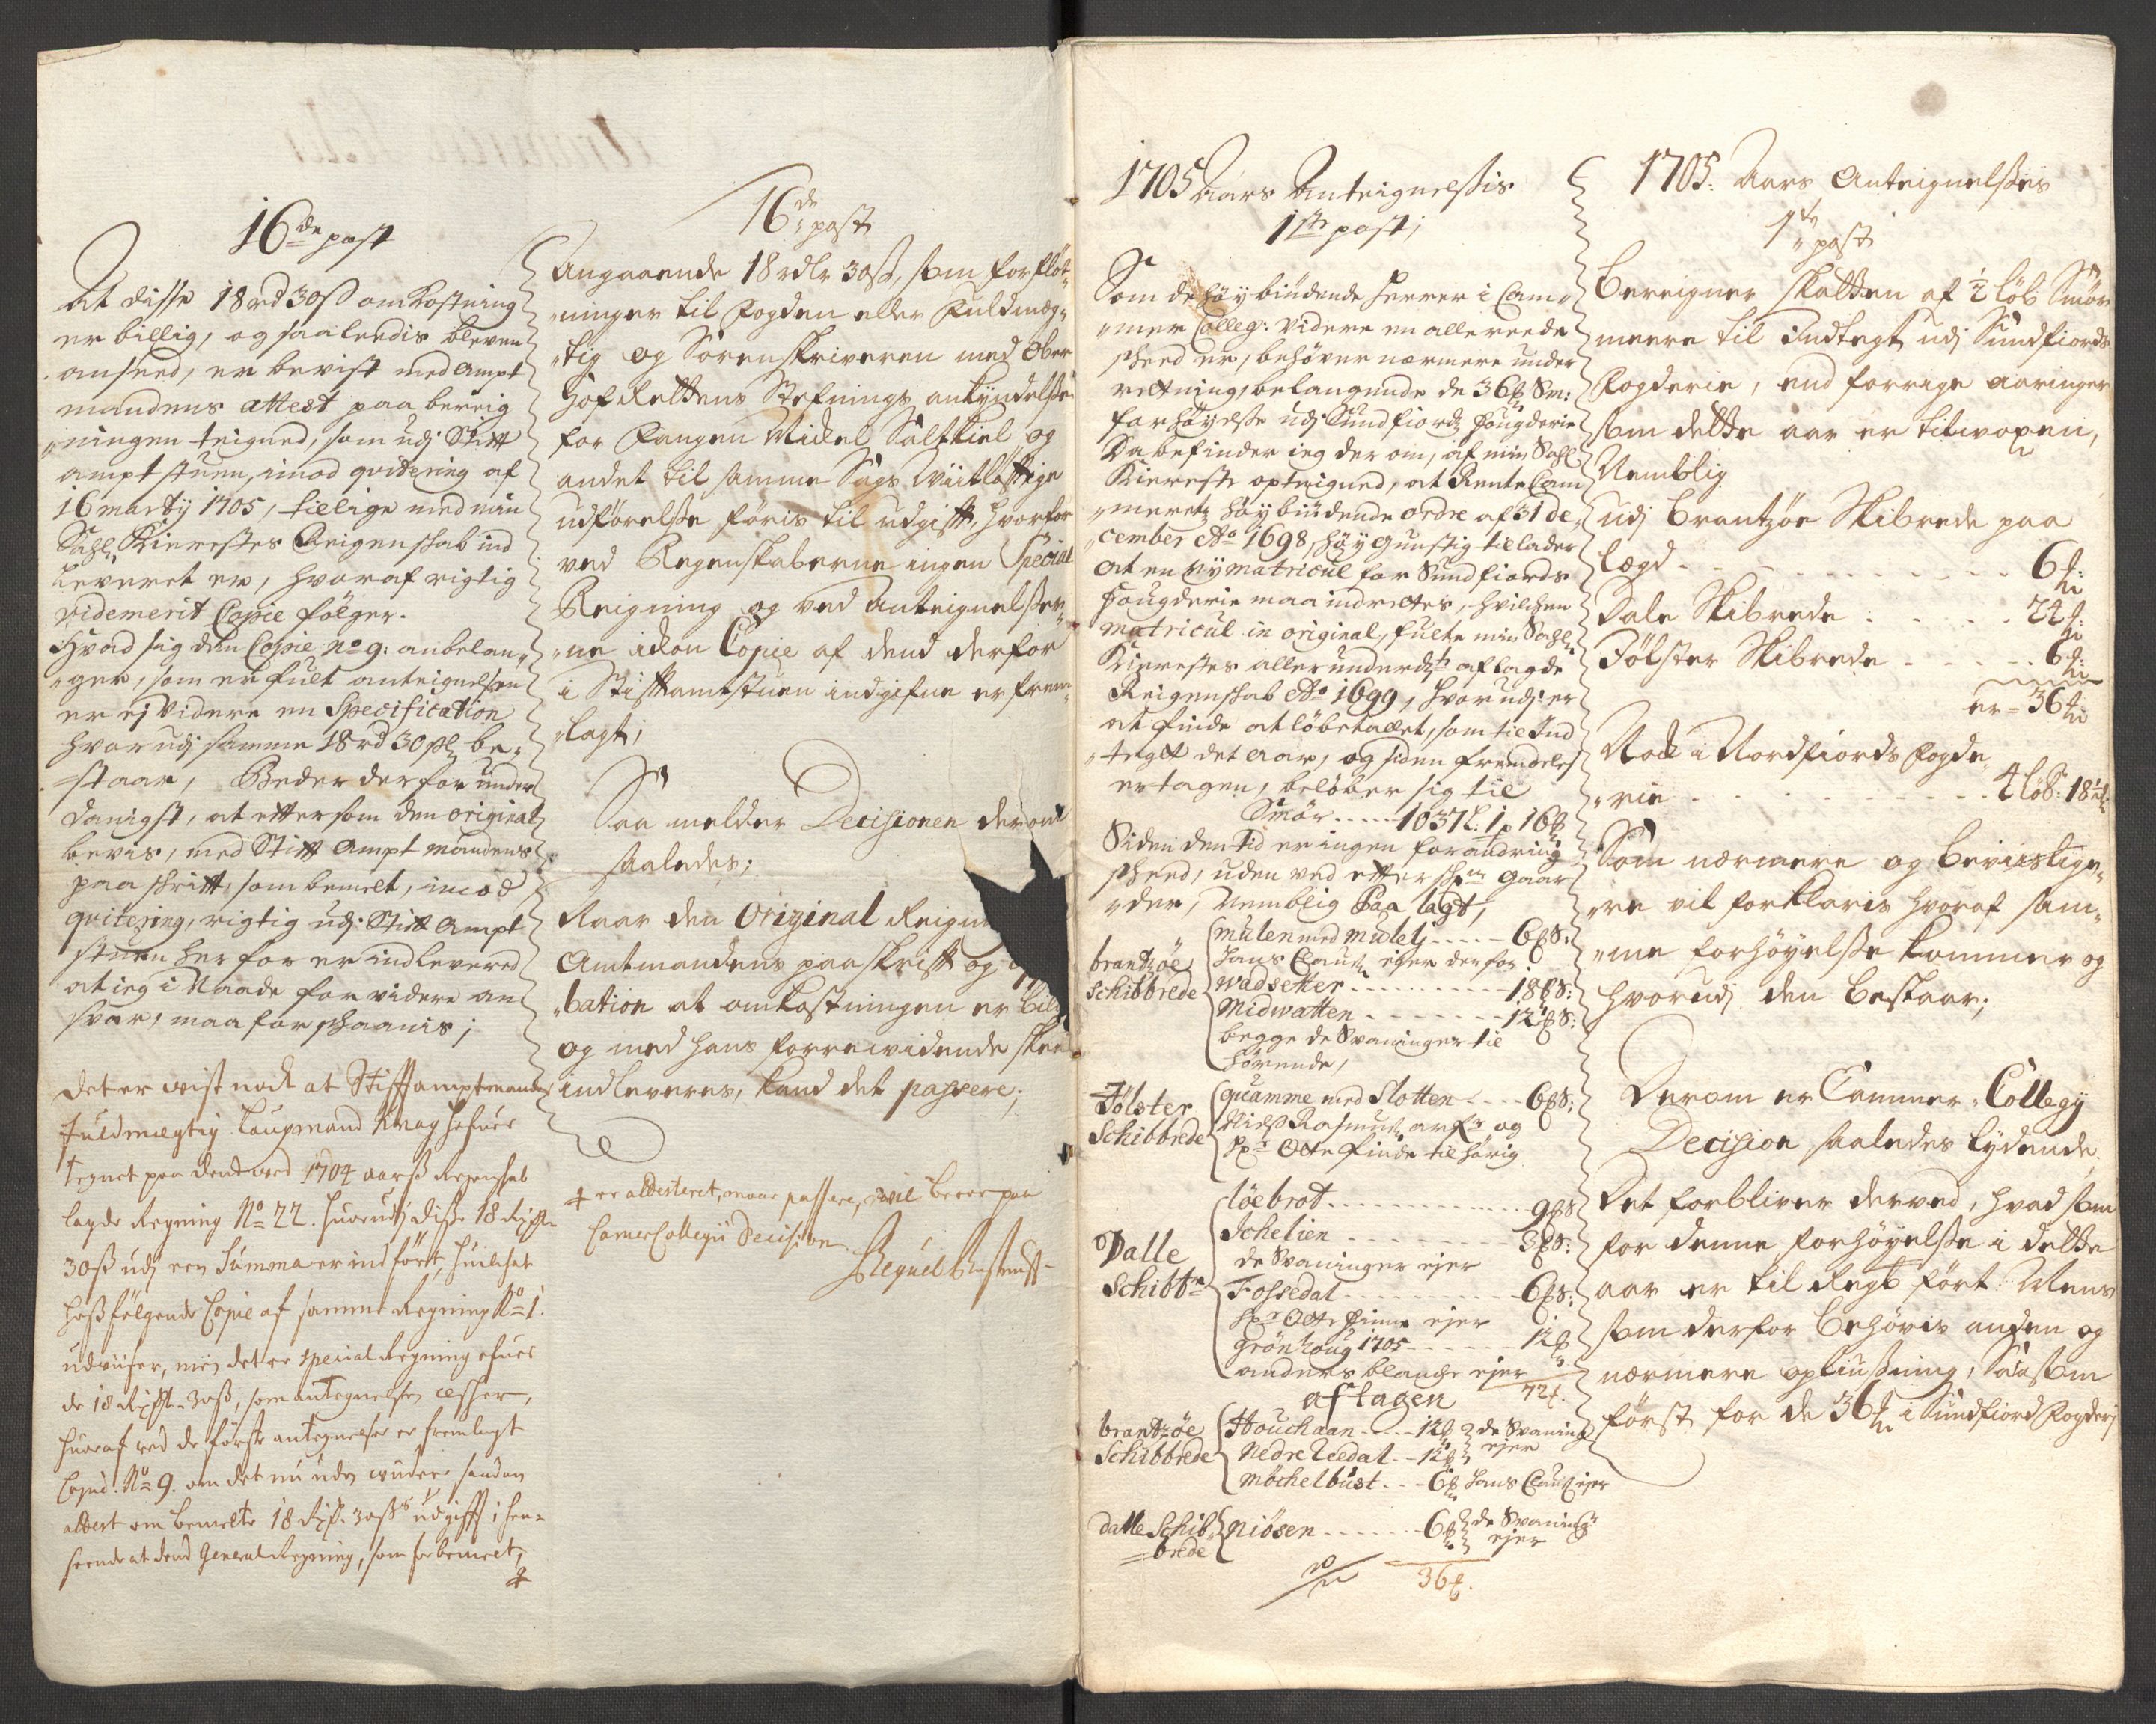 16de post
At disse 18 rd 30ß omkostning
er billig, og saaleedis bleven
anseed, er bevist med Ampt
mandens attest paa bereig
ningen teigned, som udj Stift
ampt stuen, imod qvitering af
16 marty 1705, tillige med min
Sahl. Kierestes Reigenskab ind
Leveret er, hvoraf rigtig
videmerit Copie følger.
Hvad sig den Copie no 9: anbelan„
„ger, som er fult anteignelsen
er ej videre en Specification
hvorudj samme 18 rd 30 ß be„
staar, Beder derfor under
danigst, at effter som den original
bevis, med Stift Ampt mandens
paa skrift, som bemelt, imod
qvitering, rigtig udj Stift Ampt
stuen her for er indlevered
at ieg i Naade for videre an
svar, maa forskaanis;
Det er vist nock at Stiftamptmandens
fuldmægtig Laugmand Knag hafuer
tegnet paa dend ved 1704 aarß Regenskab
lagde Regning No 22. huorudj disse 18 Rdr
30ß udj een Summa er indført, huilchet
hoßfølgende Copie af samme Regning No 1.
udviiser, mens det er special Regning ofuer
de 18 Rdr 30ß, som antegnelsen æsher,
huoraf ved de første antegnelser er fremlagt
Copie No 9. om det nu uden videre saadan
attest om bemelte 18 Rdr 30ß udgift i hen„
seende at dend General Regning, som for bemelt,
16de post
Angaaende 18 rdlr 30ß, som for flöt„
„ninger til Fogden eller Fuldmæg„
„tig og Sorenskriveren med Ober
Hof Rettens Stefnings ankyndelse
for Fangen Mickel Saltkiel og
andet til samme Sags Viitløftige
udførelse føris til udgift, hvorfor
ved Regenskaberne ingen Special
Reigning og ved Anteignelser„
„ne ickon Copie af dend derfor
i Stiftamtstuen indgifne er frem„
„lagt;
Saa melder Decisionen der om
saaledes;
Naar den Original Reign
Amtmandens paaskrift og
„bation at omkostningen er bil
og med hans forrevidende skeed
indleveres, kand det passere;
er attesteret, maae passere, vil beroe paa
CamerCollegii Decision.
1705 Aars Anteignelssis
1ste post;
Som de høybiudende Herrer i Cam„
„mer Colleg: videre en allereede
skeed er, behøver nærmere under
retning, belangende de 36 ℔ Sm:
forhøyelse udj Sundfiords fougderie
Da befinder ieg der om, af min Sahl
Kiereste optegned, at Rente Cam
„merets høybiudende ordre af 31 de„
„cember Ao 1698, høygunstig tilader
at en ny matricul for Sundfiords
fougderie maa indrettes, hvilchen
matricul in original, fulte min Sahl.
Kierestes allerunderdst aflagde
Reigenskab Ao 1699, hvorudj er
at finde at løbetallet, som til Ind
„tegt det aar, og siden fremdeles
er tagen, beløber sig til
Smör ..... 1037 L: 1 p 16 ℔
Siden den tid er ingen forandring
skeed, uden ved effterschne gaar
„der, Nemblig Paa lagt,
brandzöe
Schibbrede
mulen med mulelj ..... 6 ℔ S:
Hans Clauß: ejer derfor
wadsetter ..... 18 ℔ S:
Midwatten ..... 12 ℔ S:
begge de Svaninger til
hørende,
Jölster
Schibbrede
quamme med Slotten .... 6 ℔ S:
Nielß Rasmuß: arfr og
Hr Otte finde tilhørig
Dalle
Schibbre
löebrot ..... 9 ℔ S
Schelien ..... 3 ℔ S:
de Svaninger ejer
Fossedal ..... 6 ℔ S:
Hr Otte finne ejer
grönhoug 1705 ..... 12 ℔
anders blanche ejer
72 ℔.
af tagen
brandzöe
Schibbrede
Houchaan .... 12 ℔ de Svaning
Nedre Leedal .. 12 ℔ ejer
möchelbust ... 6 ℔ Hans Clauß ejer
dalle Schib
brede
niösen ...... 6 ℔ de Svaning
ejer
36 ℔.
1705: Aars Anteignelsses
1te post
Bereigner Skatten af ½ løb Smör
meere til Indtegt udj Sundfiords
Fogderie, end forrige aaringer
som dette aar er tilvoxen,
Nemblig
udj Brantzøe Skibrede paa
lægd ..... 6 ℔:
Dale Skibrede ..... 24 ℔:
Jölster Skibrede ..... 6 ℔:
er = 36 ℔
Nock i Nordfiords Fogde„
„rie ..... 4 løb: 18 ℔
Som nærmere og beviislige„
„re vil forklaris hvoraf sam„
„me forhøyelse kommer og
hvorudj den bestaar;
Derom er Cammer Collegij
Decision saaledes lydende.
Det forbliver derved, hvad som
for denne forhøyelse i dette
aar er til Regt ført. Mens
som derfor behøvis anden og
nærmere opliusning, Saasom
først for de 36 ℔ i Sundfiord Fogderj